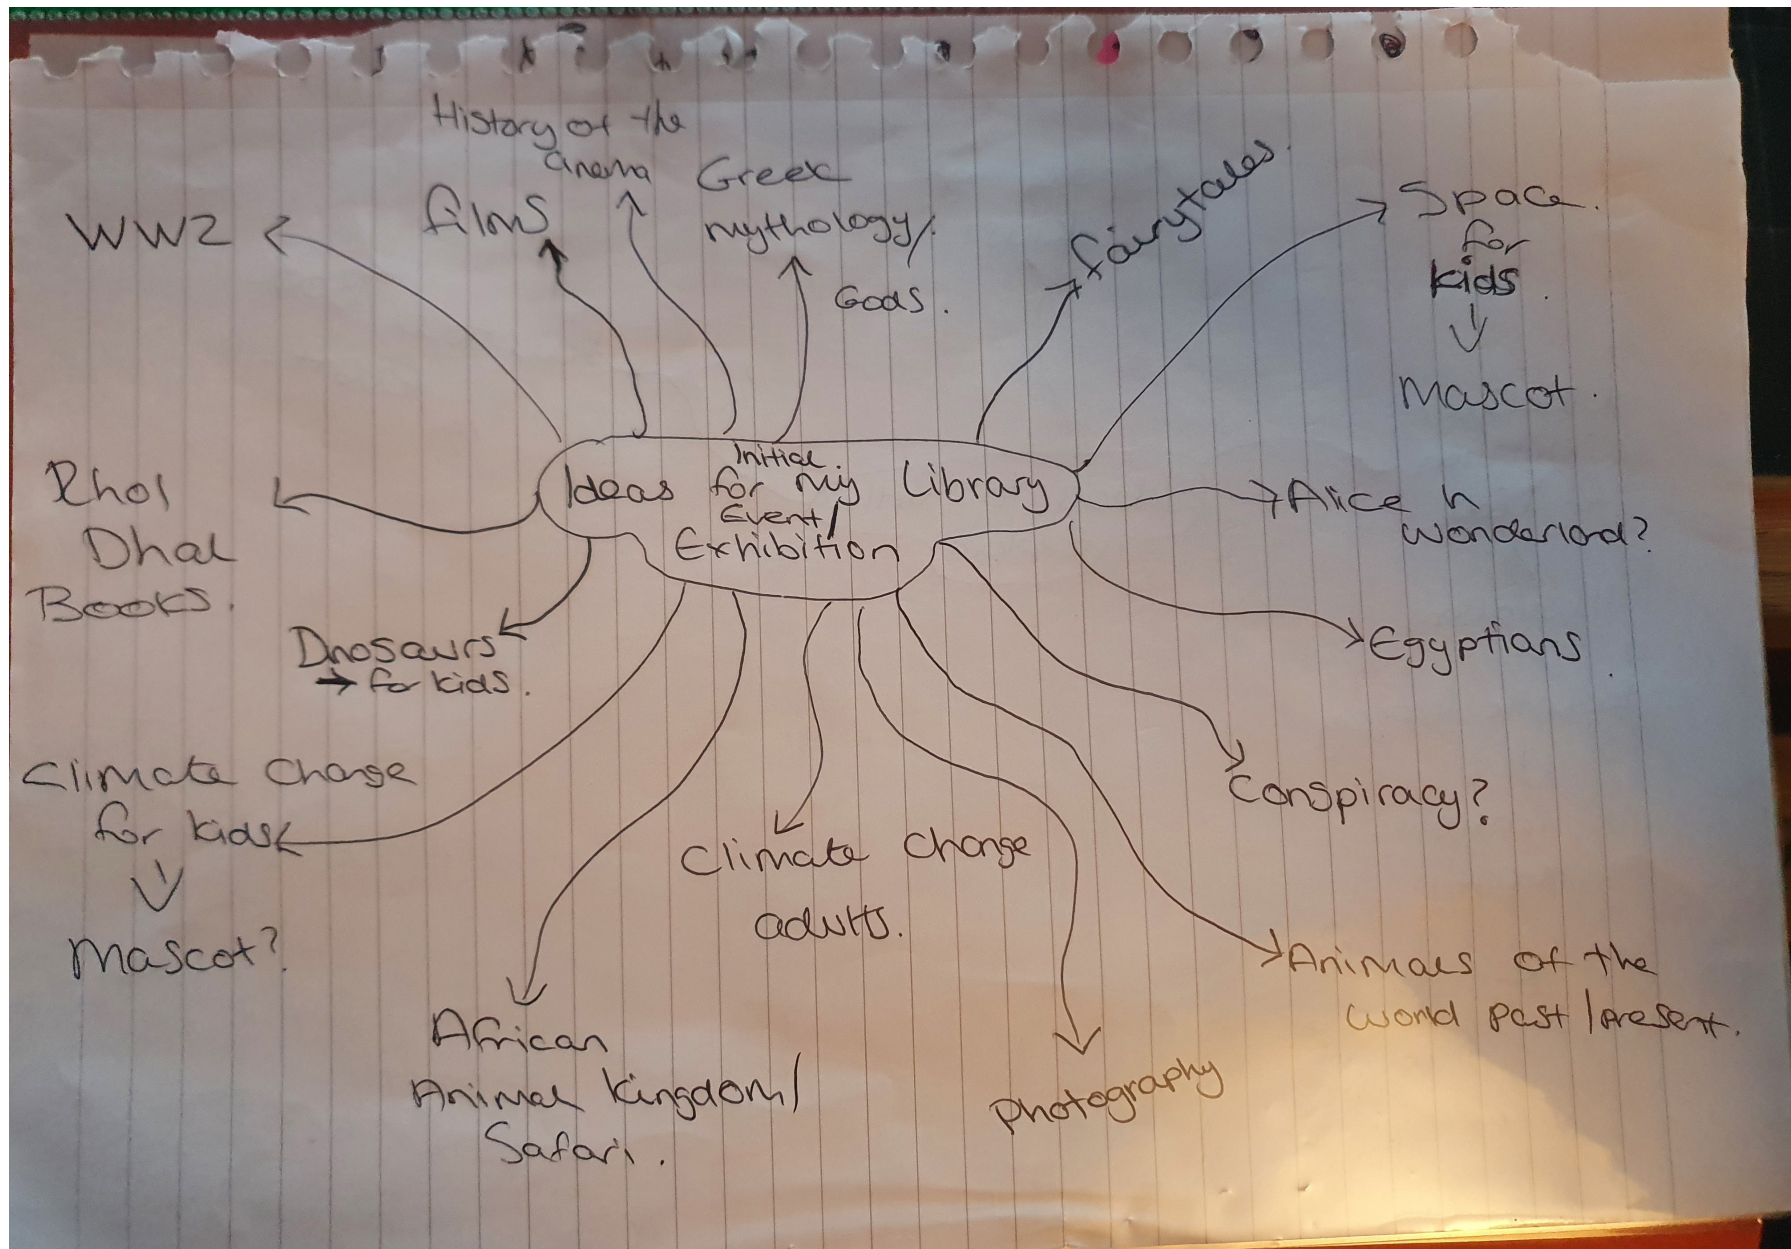 Initial
Ideas for my Library
Event/
Exhibition
WW2
films
History of the
Cinema
Greek
mythology/
Gods.
fairytales.
Space.
for
kids.
Mascot.
Alice in
Wonderland?
Egyptians.
Conspiracy?
Animals of the
World past/present.
photography
Climate Change
adults.
African
Animal Kingdom/
Safari.
Climate Change
for kids
Mascot?
Dnosaurs
→ for kids.
Rhol
Dhal
Books.